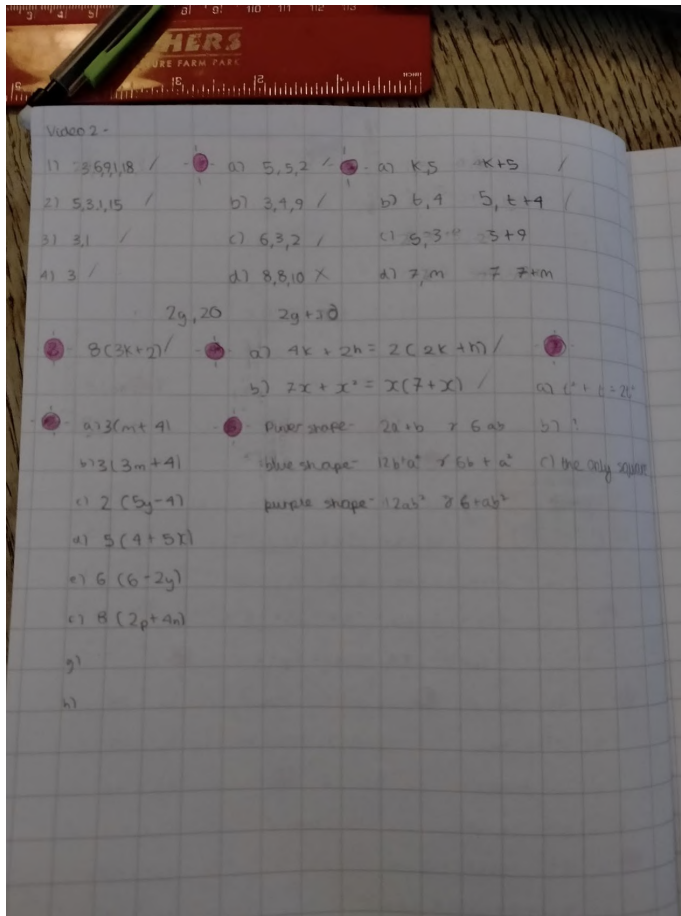 HERS
URE FARM PARK
Video 2 -
1) 3,6,9,1,18 /
2) 5,3,1,15 /
3) 3,1 /
4) 3 /
a) 5,5,2 /
b) 3,4,9 /
c) 6,3,2 /
d) 8,8,10 X
a) K,5 K+5 /
b) 6,4 5, t+4 /
c) 5,3 3+9
d) 7,m 7 7+m
2g,20 2g+30
8(3k+2) /
a) 4k + 2h = 2(2k+h) /
b) 7x + x² = x(7+x) /
b) ?
c) the only square
a) 3(m+4)
b) 3(3m+4)
c) 2(5y-4)
d) 5(4+5x)
e) 6(6-2y)
c) 8(2p+4n)
g)
h)
shape- 2a+b 6ab
blue shape- 12b²a² 6b+a²
purple shape- 12ab² 6+ab²